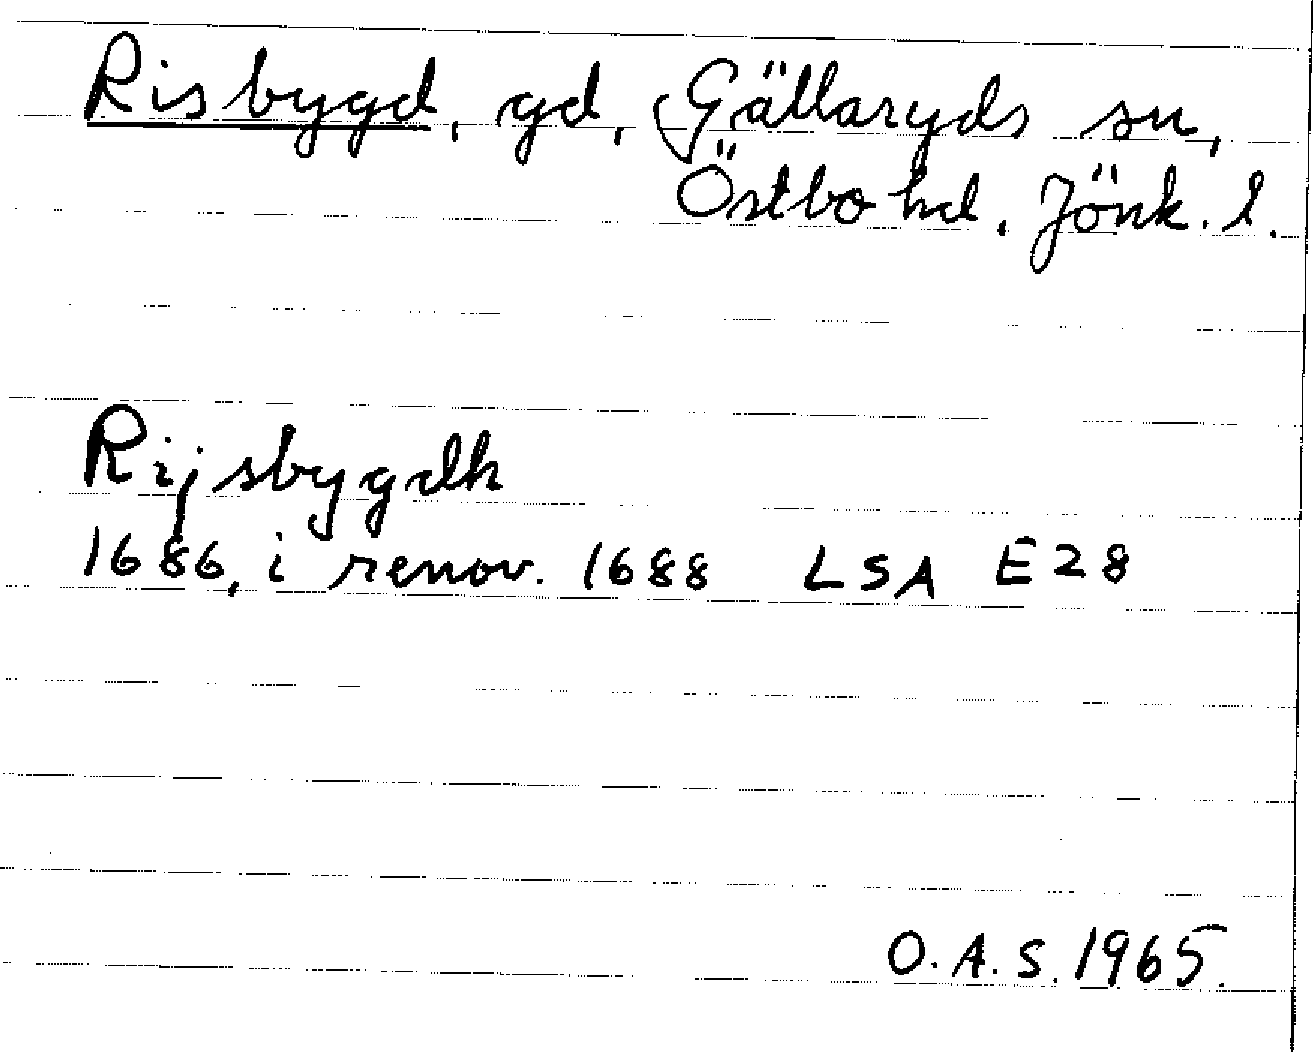 Risbygd, gd, Gällaryds sn,
Östbo hd. Jönk. l.
Rijsbygdh
1686, i renov. 1688 LSA E28
O.A.S. 1965.